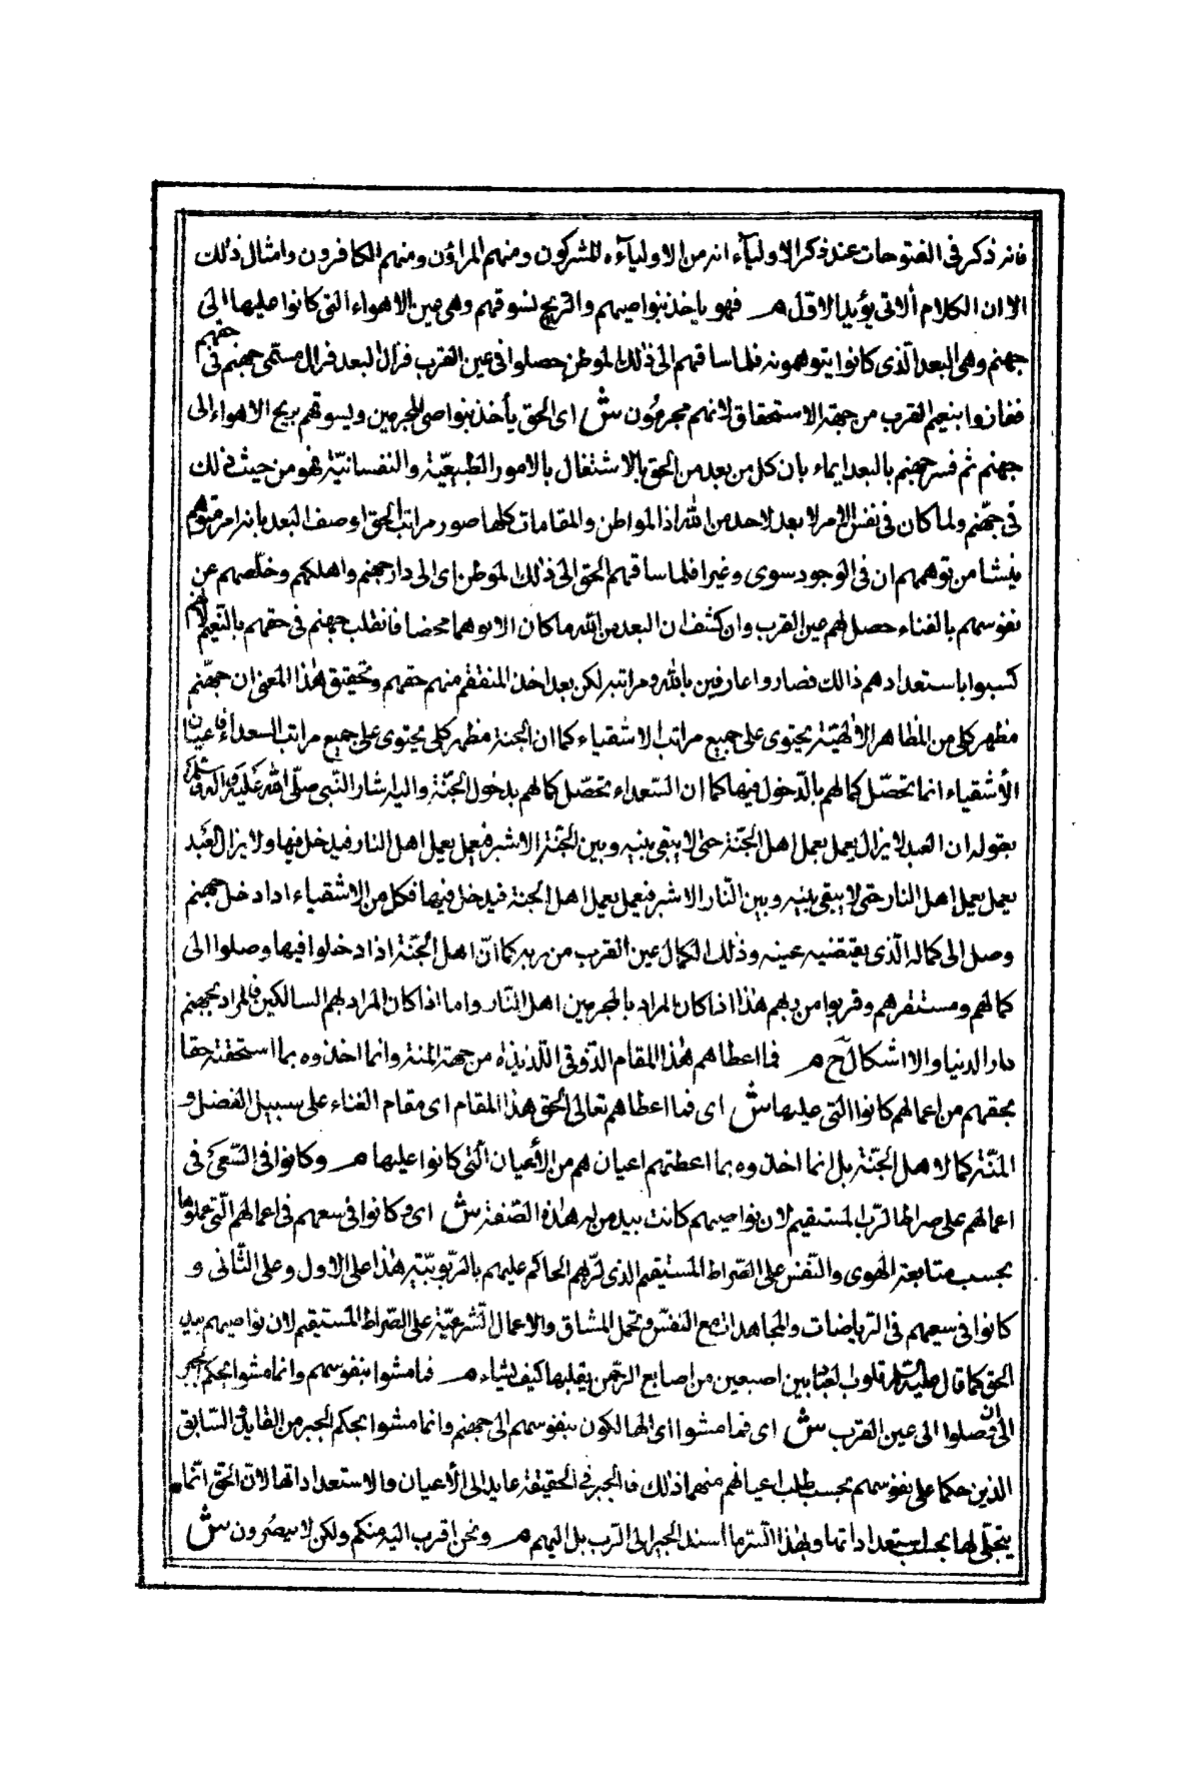 فانه ذكر فى الفتوحات عند ذكر الاولياء انه من الاولياءه المشركون ومنهم المراؤن ومنهم الكافرون وامثال ذلك
الا ان الكلام الاتى يؤيد الاول م فهو ياخذ بنواصيهم والريح تسوقهم وهى عين الاهواء التى كانوا عليها الى
جهنم وهى البعد الذى كانوا يتوهمونه فلما ساقهم الى ذلك الموطن حصلوا فى عين القرب فزال البعد فزال مسمى جهنم فى حقهم
ففازوا بنعيم القرب من جهة الاستحقاق لانهم مجرمون ش اى الحق يأخذ بنواصى المجرمين ويسوقهم بريح الاهواء الى
جهنم ثم فسر جهنم بالبعد ايماء بان كل من بعد من الحق بالاشتغال بالامور الطبيعية والنفسانية فهو من حيث ذلك
فى جهنم ولما كان فى نفس الامر لا بعد لاحد من الله اذ المواطن والمقامات كلها صور مراتب الحق وصف البعد بانه امر متوهم
ينشا من توهمهم ان فى الوجود سوى وغيرا فلما ساقهم الحق الى ذلك الموطن اى الى دار جهنم واهلكهم وخلصهم عن
نفوسهم بالفناء حصل لهم عين القرب وانكشف ان البعد من الله ما كان الا توهما محضا فانقلب جهنم فى حقهم بالنعيم لانهم
كسبوا باستعدادهم ذالك فصاروا عارفين بالله ومراتبه لكن بعد اخذ المنتقم منهم حقهم وتحقيق هذا المعنى ان جهنم
مظهر كلى من المظاهر الالهية يحتوى على جميع مراتب الاشقياء كما ان الجنة مظهر كلى يحتوى على جميع مراتب السعداء فاعيان
الأشقياء انما تحصل كمالهم بالدخول فيها كما ان السعداء تحصل كمالهم بدخول الجنة واليه اشار النبى صلى الله عليه واله وسلم
بقوله ان العبد لا يزال يعمل بعمل اهل الجنة حتى لا يبقى بينه وبين الجنة الا شبر فيعمل بعمل اهل النار فيدخل فيها ولا يزال العبد
يعمل بعمل اهل النار حتى لا يبقى بينه وبين النار الا شبر فيعمل بعمل اهل الجنة فيدخل فيها فكل من الاشقياء اذا دخل جهنم
وصل الى كماله الذى يقتضيه عينه وذلك الكمال عين القرب من ربه كما ان اهل الجنة اذا دخلوا فيها وصلوا الى
كمالهم ومستقرهم وقربوا من ربهم هذا اذا كان المراد بالمجرمين اهل النار واما اذا كان المراد بهم السالكين فالمراد بجهنم
دار الدنيا والا اشكال ح م فما اعطاهم هذا المقام الذوقى اللذيذة من جهة المنة وانما اخذوه بما استحقته حقا
يحقهم من اعمالهم كانوا التى عليها ش اى فما اعطاهم تعالى الحق هذا المقام اى مقام الفناء على سبيل الفضل و
المنة كما لاهل الجنة بل انما اخذوه بما اعطتهم اعيانهم من الأعيان التى كانوا عليها م وكانوا فى السعى فى
اعمالهم على صراط الرب المستقيم لان نواصيهم كانت بيد من له هذه الصفة ش اى كانوا فى سعيهم فى اعمالهم التى عملوها
بحسب متابعة الهوى والنفس على الصراط المستقيم الذى لربهم الحاكم عليهم بالربوبية هذا على الاول وعلى الثانى و
كانوا فى سعيهم فى الرياضات والمجاهدات مع النفس وتحمل المشاق والاعمال الشرعية على الصراط المستقيم لان نواصيهم بيد
الحق كما قال عليه السلام قلوب العباد بين اصبعين من اصابع الرحمن يقلبها كيف يشاء م فما مشوا بنفوسهم وانما مشوا بحكم الجبر
الى ان وصلوا الى عين القرب ش اى فما مشوا اى الهالكون بنفوسهم الى جهنم وانما مشوا بحكم الجبر من القايد السابق
الذين حكما على نفوسهم بحسب طلب اعيانهم منهما ذلك فالجبر فى الحقيقة عايد الى الأعيان والاستعداداتها لان الحق انما
يتجلى لها بحسب استعداداتها ولهذا السر ما اسند الجبر الى الرب بل اليهم م ونحن اقرب اليه منكم ولكن لا تبصرون ش